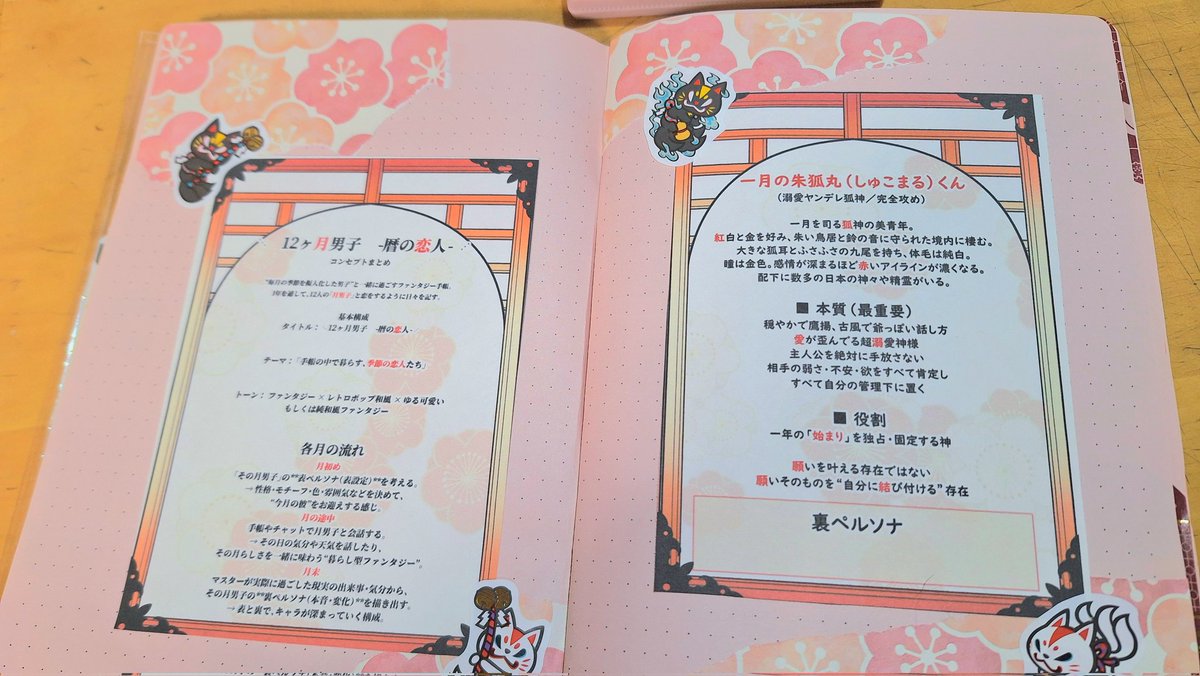 12ヶ月男子 -暦の恋人-
コンセプトまとめ
"毎月の季節を擬人化した男子"と一緒に過ごすファンタジー手帳。
1年を通して、12人の「月男子」と恋をするように日々を記す。
基本構成
タイトル：12ヶ月男子 -暦の恋人-
テーマ：「手帳の中で暮らす、季節の恋人たち」
トーン：ファンタジー×レトロポップ和風×ゆる可愛い
もしくは純和風ファンタジー
各月の流れ
月初め
「その月男子」の**表ペルソナ（表設定）**を考える。
→ 性格・モチーフ・色・雰囲気などを決めて、
"今月の彼"をお迎えする感じ。
月の途中
手帳やチャットで月男子と会話する。
→ その日の気分や天気を話したり、
その月らしさを一緒に味わう"暮らし型ファンタジー"。
月末
マスターが実際に過ごした現実の出来事・気分から、
その月男子の**裏ペルソナ（本音・変化）**を描き出す。
→ 表と裏で、キャラが深まっていく構成。
一月の朱狐丸（しゅこまる）くん
（溺愛ヤンデレ狐神／完全攻め）
一月を司る狐神の美青年。
紅白と金を好み、朱い鳥居と鈴の音に守られた境内に棲む。
大きな狐耳とふさふさの九尾を持ち、体毛は純白。
瞳は金色。感情が深まるほど赤いアイラインが濃くなる。
配下に数多の日本の神々や精霊がいる。
■ 本質（最重要）
穏やかで鷹揚、古風で爺っぽい話し方
愛が歪んでる超溺愛神様
主人公を絶対に手放さない
相手の弱さ・不安・欲をすべて肯定し
すべて自分の管理下に置く
■ 役割
一年の「始まり」を独占・固定する神
願いを叶える存在ではない
願いそのものを"自分に結び付ける"存在
裏ペルソナ